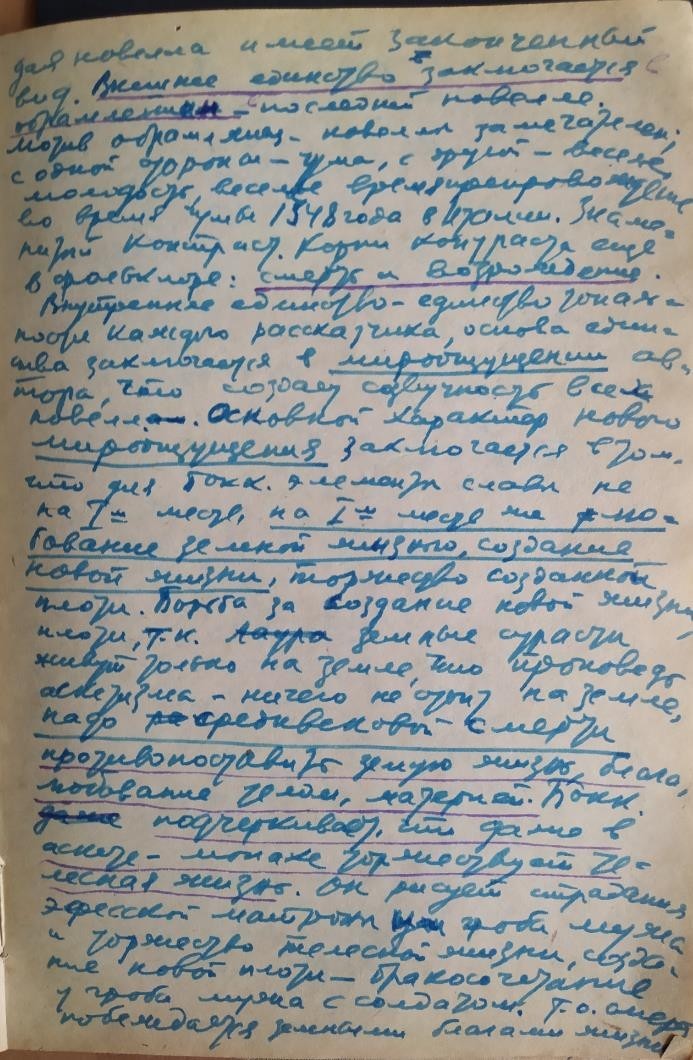 дая новелла имеет законченный
вид. Внешнее единство заключается в
обрамлении – последней новелле.
Мотив обрамляющ. новеллы замечателен;
с одной стороны – чума, с другой – веселая
молодость, веселое времяпрепровождение
во время чумы 1348 года в Италии. Знаме-
нитый контраст. Корни контраста еще
в фольклоре: смерть и возрождение.
Внутреннее единство – единство тональ-
ности каждого рассказчика, основа един-
ства заключается в мироощущении ав-
тора, что создает созвучность всех
новелл. Основной характер нового
мироощущения заключается в том,
что для Бокк. элементы славы не
на I-м месте, на I-м месте же любо-
вание земной жизнью, создание
новой жизни, торжество созданной
плоти. Борьба за создание новой жизни,
плоти, т.к. Лаура земные страсти
живут только на земле, что проповедь
аскетизма – ничего не стоит на земле,
надо средневековой смерти
противопоставить земную жизнь, благо-
тело, материей. Бокк.
даже подчеркивает, что даже в
аскете – монахе торжествует те-
лесная жизнь. Он рисует страдания
эфесской матроны у гроба мужа
и торжество телесной жизни, созда-
ние новой плоти – бракосочетание
у гроба мужа с солдатом. Т.о.
побеждается земными благами жизни